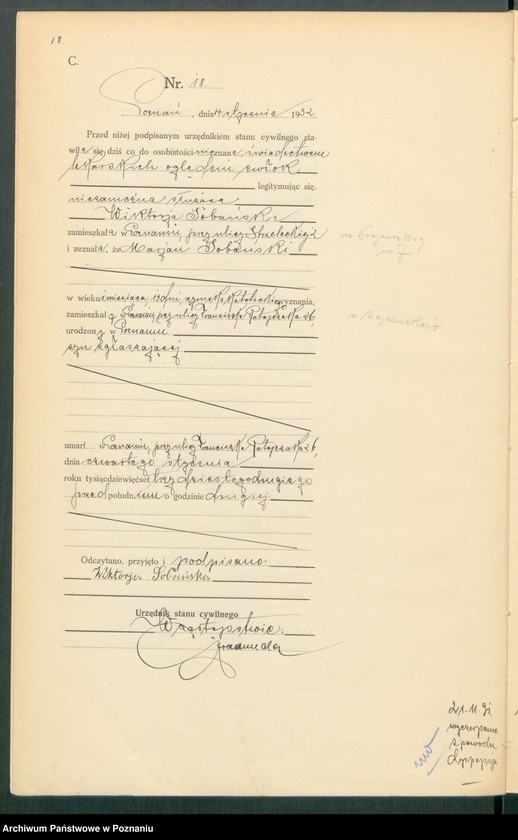 18.
C.
Nr. 18
Poznań, dnia 4 stycznia 1932
Przed niżej podpisanym urzędnikiem stanu cywilnego sta-
wiła się dziś co do osobistości nieznana, świadectwem
lekarskich oględzin zwłok
legitymując się,
niezamężna służąca
Wiktorja Sobańska
zamieszkała w Poznaniu przy ulicy Strzeleckiej 2
i zeznała, że Marjan Sobański
w wieku miesiąca 13 dni, rzymsko katolickiego wyznania,
zamieszkały w Poznaniu, przy ulicy Franciszka Ratajczaka 26,
urodzony w Poznaniu
syn zgłaszającej
umarł w Poznaniu, przy ulicy Franciszka Ratajczaka 26,
dnia czwartego stycznia
roku tysiąc dziewięćset trzydziestego drugiego
przed południem o godzinie drugiej
Odczytano, przyjęto i podpisano.
Wiktorja Sobańska
Urzędnik stanu cywilnego
W zastępstwie:
21. 11. 91
wyczerpanie
z powodu
dyspepsji
Archiwum Państwowe w Poznaniu